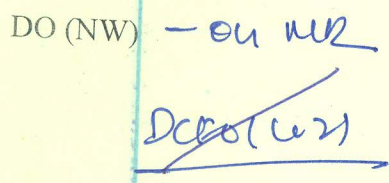 DO (NW) - on MR
DCEO(W2)